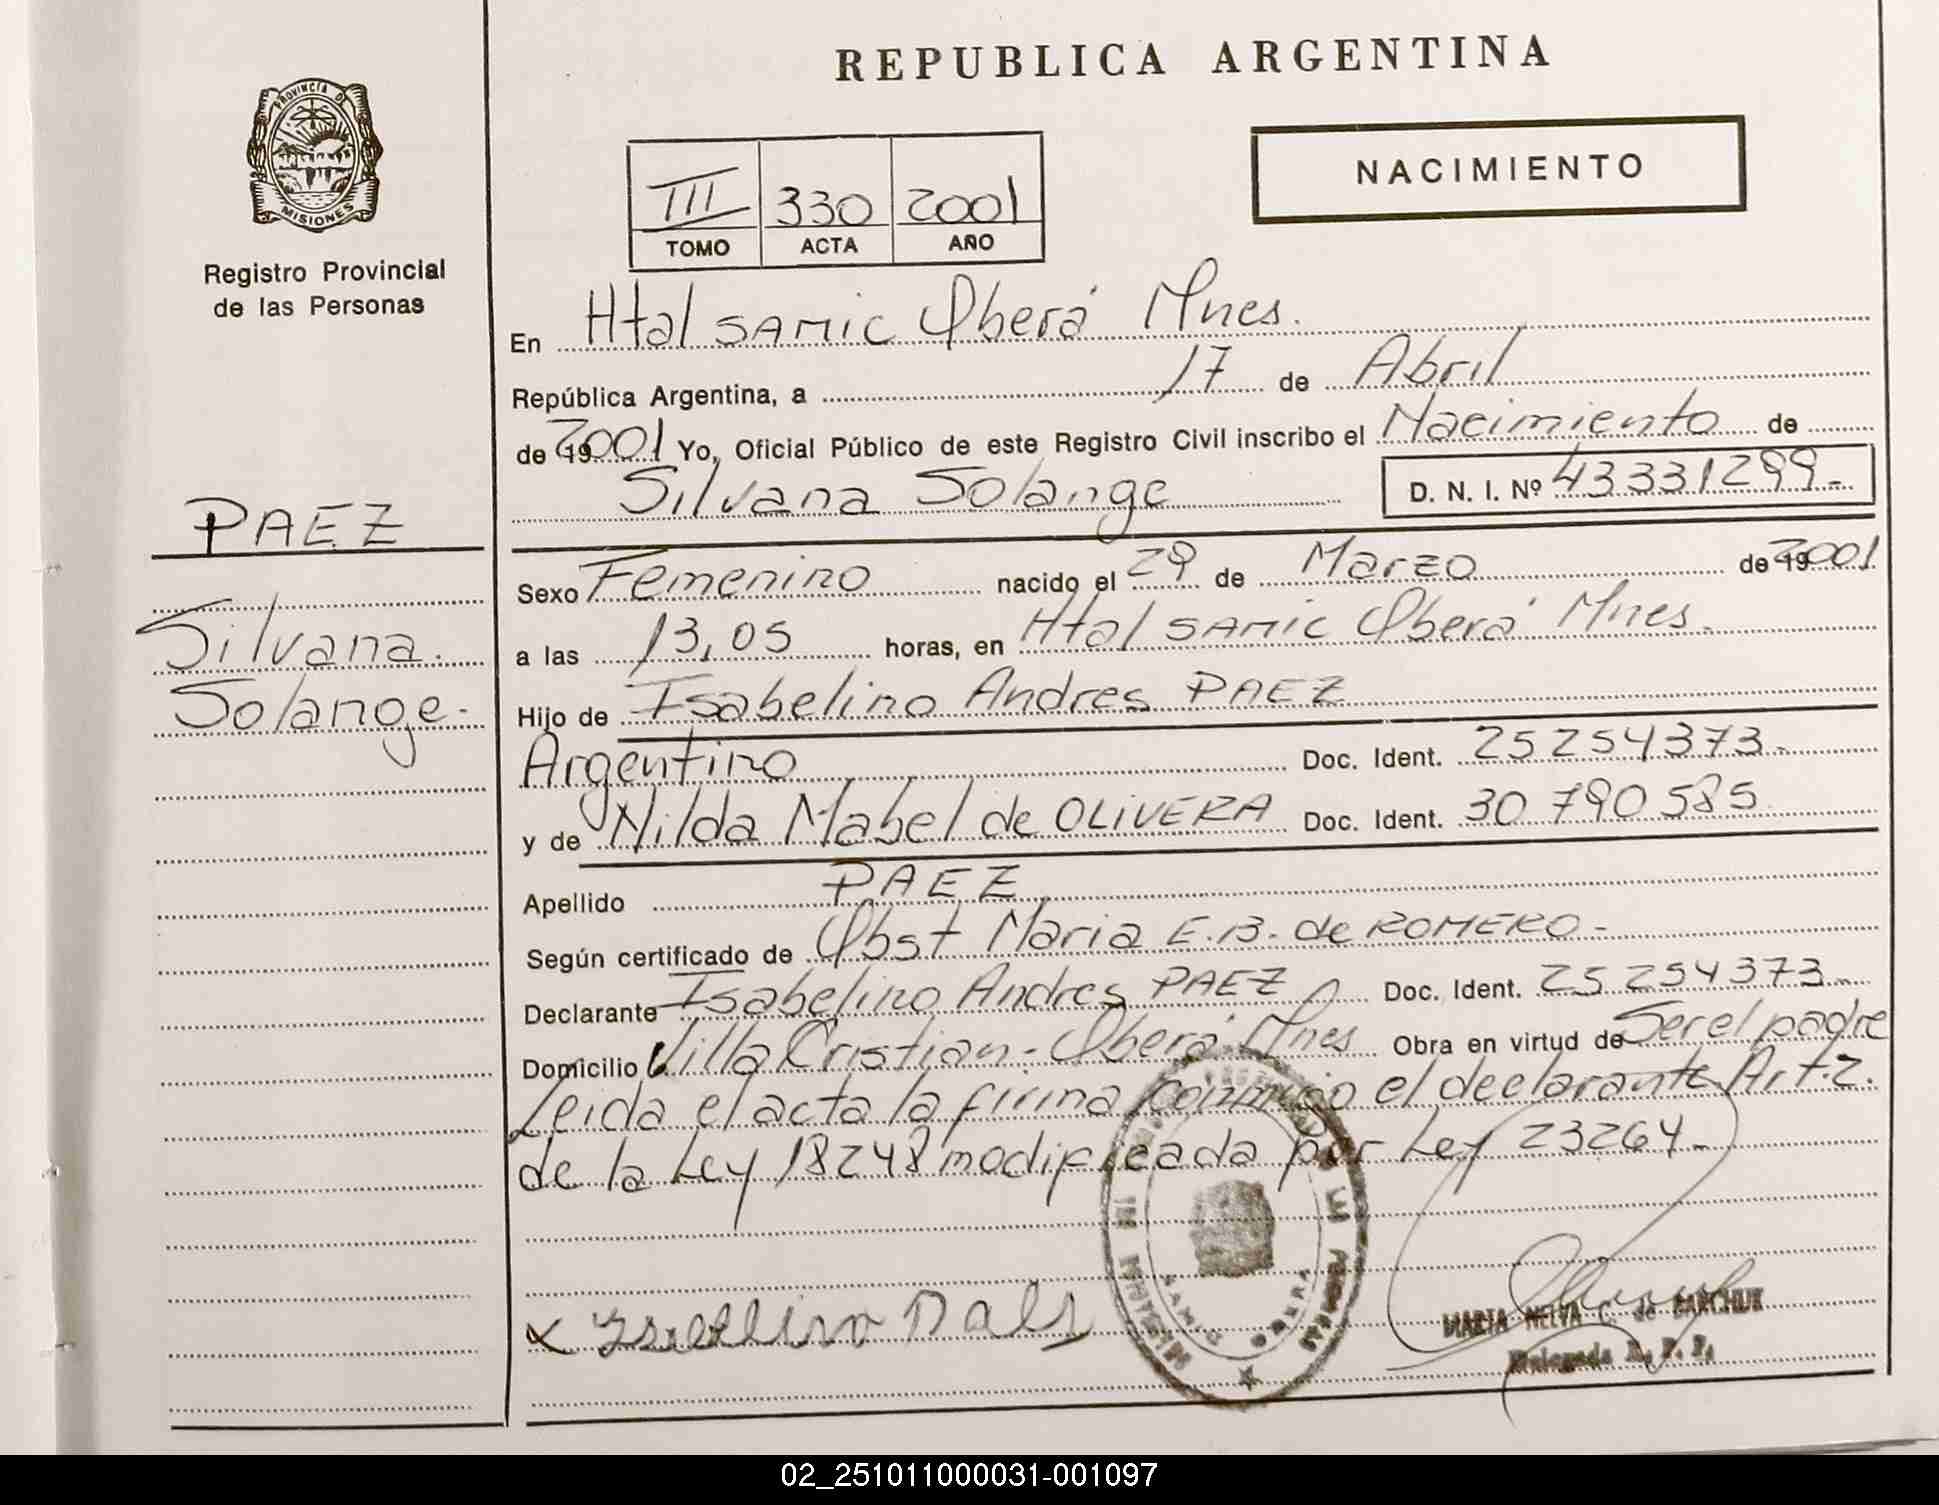 REPUBLICA ARGENTINA
PROVINCIA DE
MISIONES
Registro Provincial
de las Personas
NACIMIENTO
III 330 2001
TOMO ACTA AÑO
En Htal SAMIC Oberá Mnes.
República Argentina, a 17 de Abril
de 2001 Yo, Oficial Público de este Registro Civil inscribo el Nacimiento de
Silvana Solange D. N. I. Nº 43331299-
PAEZ
Silvana
Solange-
Sexo Femenino nacido el 29 de Marzo de 2001
a las 13,05 horas, en Htal SAMIC Oberá Mnes.
Hijo de Isabelino Andres PAEZ
Argentino Doc. Ident. 25254373-
y de Nilda Mabel de OLIVERA Doc. Ident. 30 790 585
Apellido PAEZ
Según certificado de Obst Maria E.B. de ROMERO-
Declarante Isabelino Andres PAEZ Doc. Ident. 25 254373-
Domicilio Villa Cristian- Oberá Mnes Obra en virtud de Ser el padre
Leida el acta la firma conmigo el declarante Art.2.
de la Ley 18248 modificada por Ley 23264-
MARIA NELVA C. de BARCHUK
Delegada R. P. P.
02_251011000031-001097